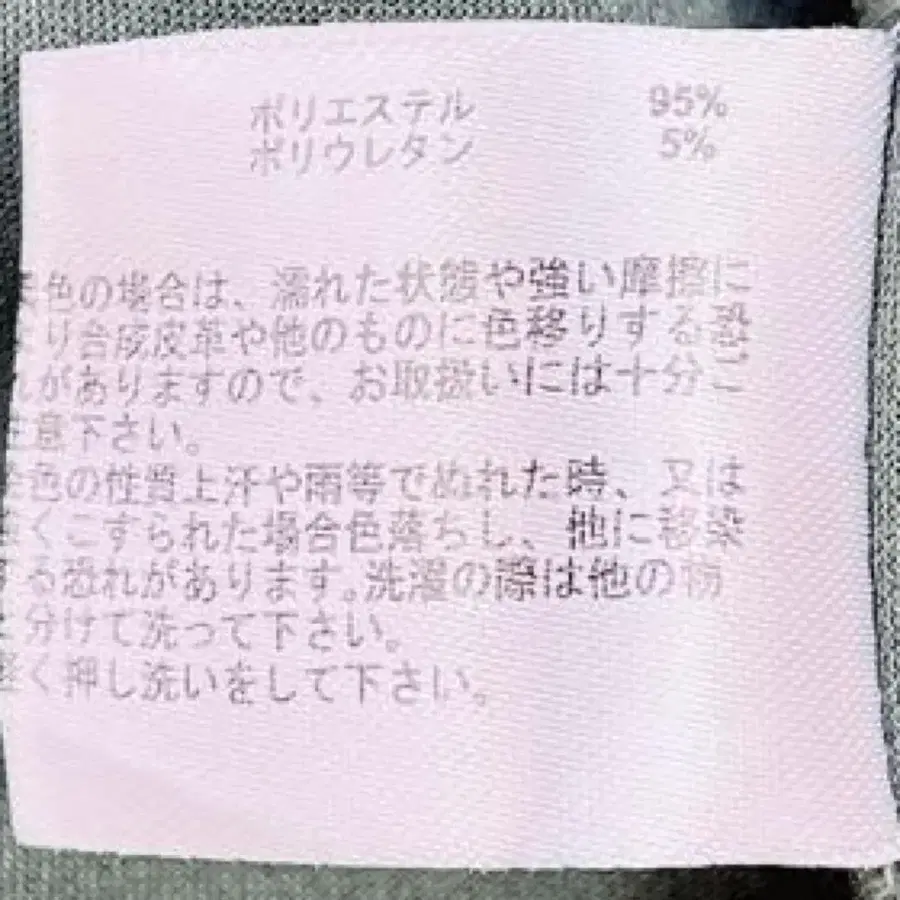 ポリエステル 95%
ポリウレタン 5%
色の場合は、濡れた状態や強い摩擦に
り合成皮革や他のものに色移りする恐
がありますので、お取扱いには十分ご
意下さい。
色の性質上汗や雨等でぬれた時、又は
くこすられた場合色落ちし、他に移染
る恐れがあります。洗濯の際は他の物
分けて洗って下さい。
く押し洗いをして下さい。